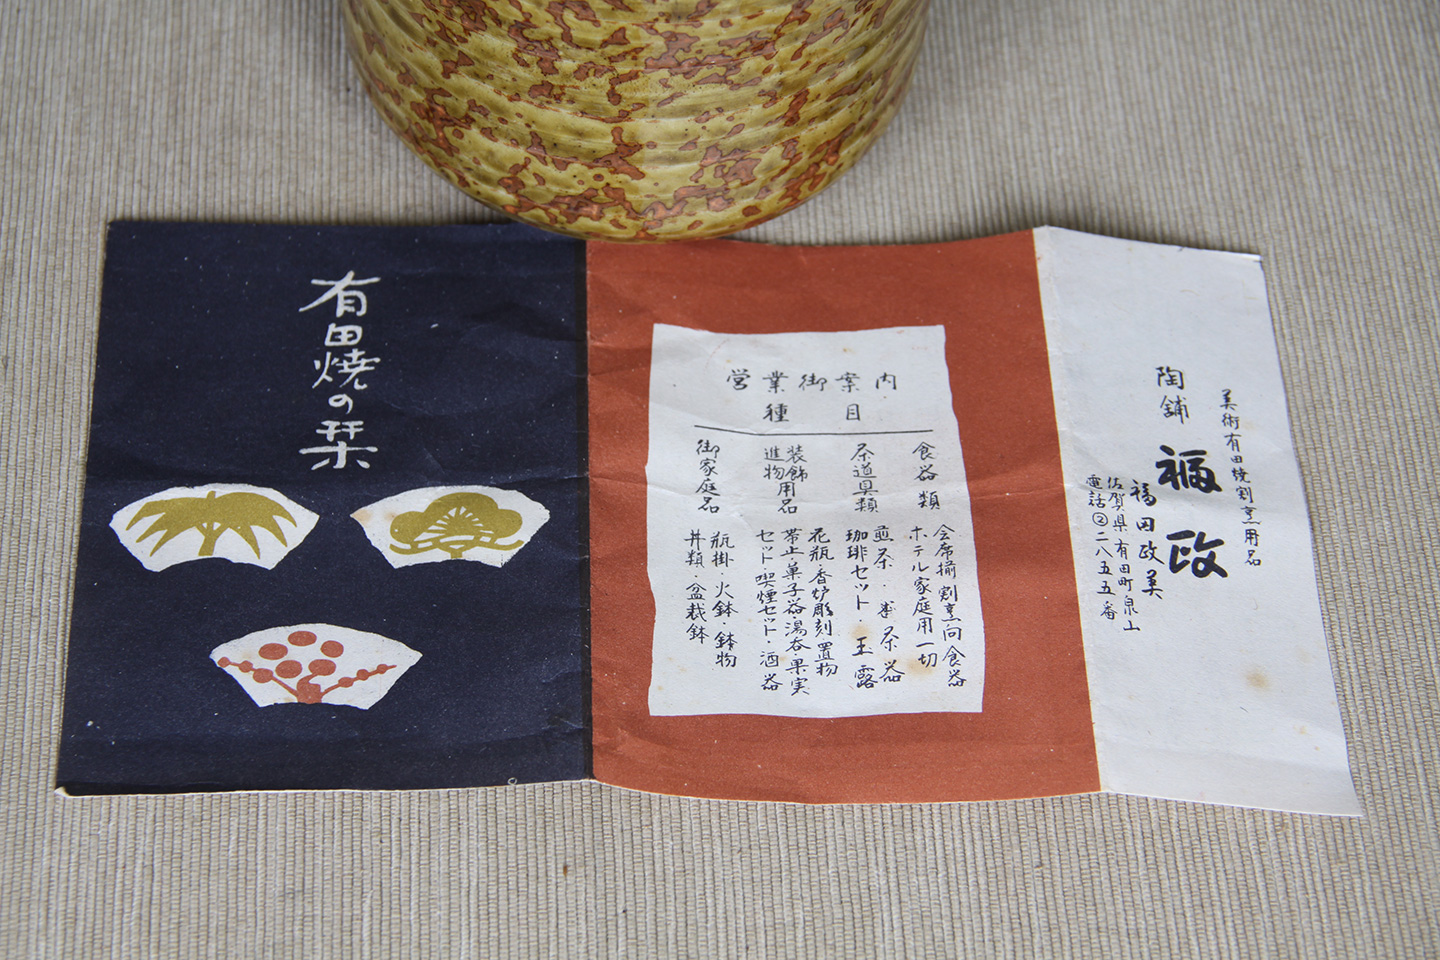 有田焼の栞
営業御案内
種目
食器類
会席揃 割烹向食器
ホテル家庭用一切
茶道具類
煎茶・ 茶器
珈琲セット・玉露
装飾用品
進物
花瓶・香炉彫刻・置物
帯止・菓子器・湯呑・果実
セット・喫煙セット・酒器
御家庭品
瓶掛 火鉢・鉢物
丼類・盆栽鉢
美術有田焼割烹用品
陶舗 福政
福田政美
佐賀県有田町泉山
電話②二八五五番